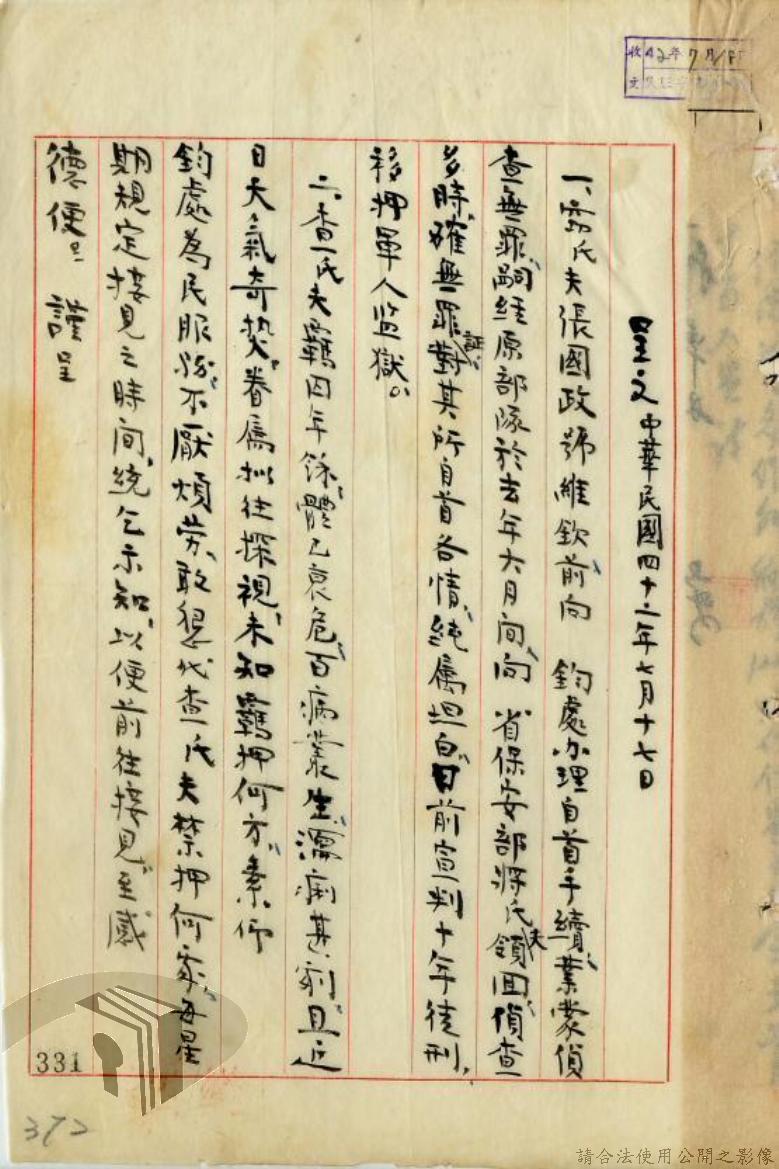 收文 42年7月18日
呈文 中華民國四十二年七月十七日
一、竊氏夫張國政號維欽前向 鈞處办理自首手續、業蒙偵
查無罪、嗣經原部隊於去年六月间、向 省保安部將氏夫領回、偵查
多時、確無罪証、對其所自首各情、純属坦白、日前宣判十年徒刑，
移押軍人监獄。
二、查氏夫羈囚年餘、體已衰危、百病叢生、瀉痢甚劇、且近
日天氣奇热、眷属拟往探視、未知羈押何方、素仰
鈞處為民服務、不厭煩劳、敢懇代查氏夫禁押何處、每星
期規定接見之時间、統乞示知、以便前往接見、至感
德便。 謹呈
331
372
請合法使用公開之影像